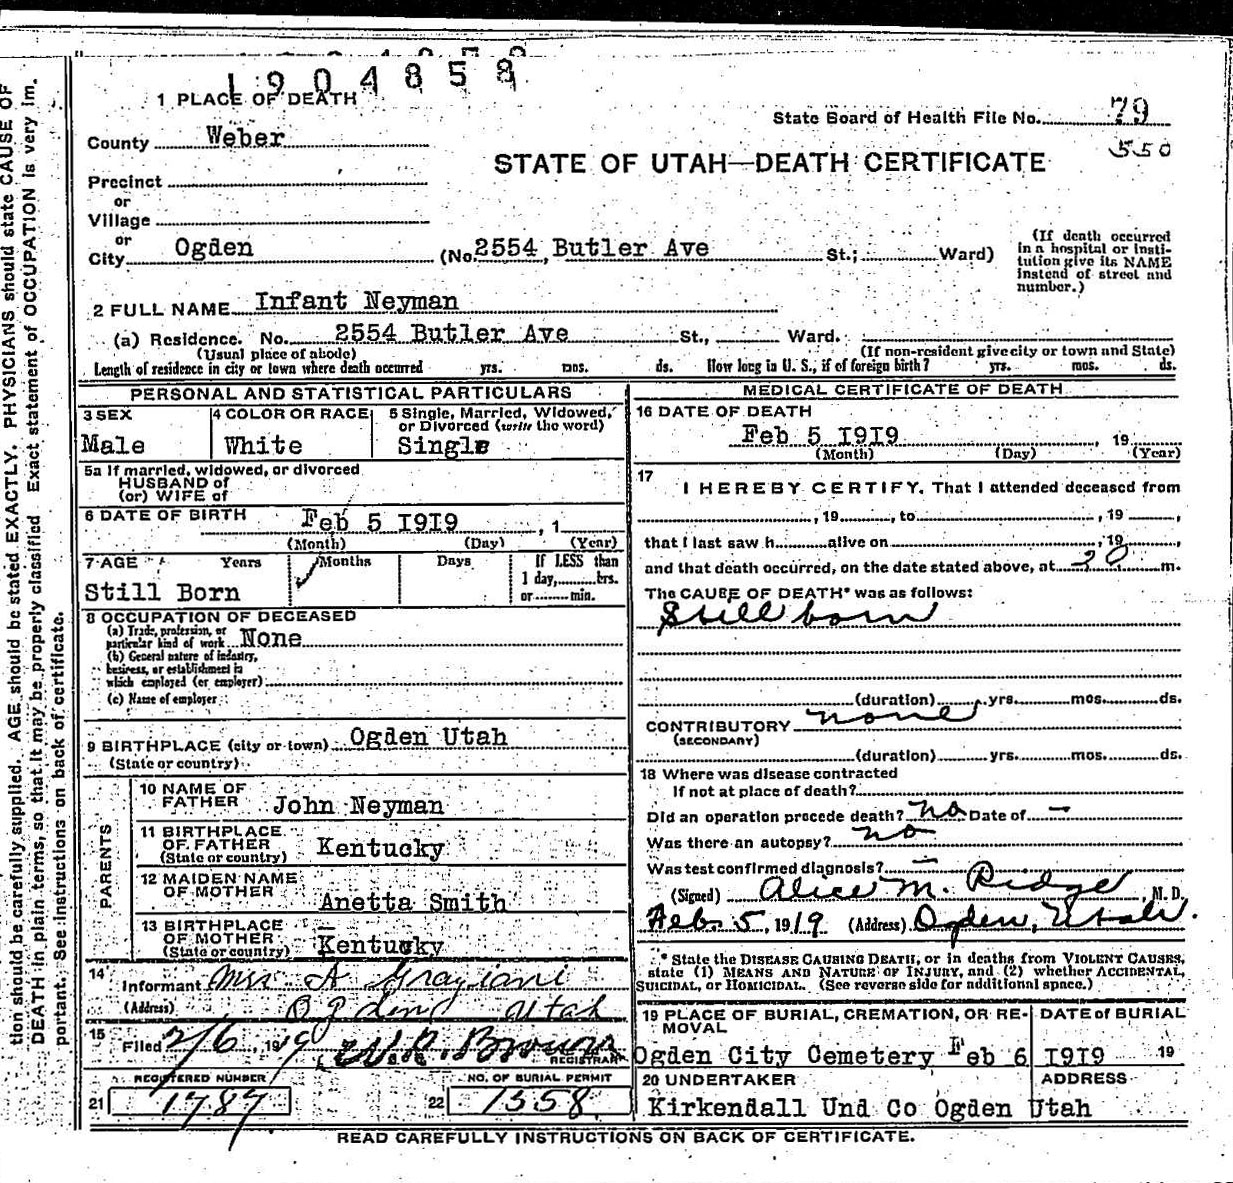 1904858
1 PLACE OF DEATH
State Board of Health File No. 79
County Weber
550
STATE OF UTAH—DEATH CERTIFICATE
Precinct
or
Village
or
City Ogden (No. 2554, Butler Ave St.; Ward)
(If death occurred
in a hospital or insti-
tution give its NAME
instead of street and
number.)
2 FULL NAME Infant Neyman
(a) Residence. No. 2554 Butler Ave St., Ward.
(Usual place of abode) (If non-resident give city or town and State)
Length of residence in city or town where death occurred yrs. mos. ds. How long in U. S., if of foreign birth? yrs. mos. ds.
PERSONAL AND STATISTICAL PARTICULARS
3 SEX
Male
4 COLOR OR RACE
White
5 Single, Married, Widowed,
or Divorced (write the word)
Single
5a If married, widowed, or divorced
HUSBAND of
(or) WIFE of
6 DATE OF BIRTH Feb 5 1919, 1
(Month) (Day) (Year)
7 AGE Years Months Days If LESS than
1 day, hrs.
or min.
Still Born
8 OCCUPATION OF DECEASED
(a) Trade, profession, or
particular kind of work None
(b) General nature of industry,
business, or establishment in
which employed (or employer)
(c) Name of employer
9 BIRTHPLACE (city or town) Ogden Utah
(State or country)
PARENTS
10 NAME OF
FATHER John Neyman
11 BIRTHPLACE
OF FATHER Kentucky
(State or country)
12 MAIDEN NAME
OF MOTHER Anetta Smith
13 BIRTHPLACE
OF MOTHER Kentucky
(State or country)
14
Informant Mrs A
(Address) Ogden Utah
15
Filed 2/6, 1919
REGISTRAR
REGISTERED NUMBER
21 1787
NO. OF BURIAL PERMIT
22 1558
MEDICAL CERTIFICATE OF DEATH
16 DATE OF DEATH
Feb 5 1919, 19
(Month) (Day) (Year)
17
I HEREBY CERTIFY, That I attended deceased from
, 19, to , 19,
that I last saw h alive on , 19,
and that death occurred, on the date stated above, at 20 m.
The CAUSE OF DEATH* was as follows:
Still born
(duration) yrs. mos. ds.
CONTRIBUTORY none
(SECONDARY)
(duration) yrs. mos. ds.
18 Where was disease contracted
If not at place of death?
Did an operation precede death? no Date of —
Was there an autopsy? no
Was test confirmed diagnosis? —
(Signed) Alice M. Ridge M. D.
Feb. 5, 1919 (Address) Ogden, Utah.
* State the DISEASE CAUSING DEATH, or in deaths from VIOLENT CAUSES,
state (1) MEANS AND NATURE OF INJURY, and (2) whether ACCIDENTAL,
SUICIDAL, or HOMICIDAL. (See reverse side for additional space.)
19 PLACE OF BURIAL, CREMATION, OR RE-
MOVAL
DATE of BURIAL
Ogden City Cemetery Feb 6 1919 19
20 UNDERTAKER ADDRESS
Kirkendall Und Co Ogden Utah
READ CAREFULLY INSTRUCTIONS ON BACK OF CERTIFICATE.
tion should be carefully supplied. AGE should be stated EXACTLY. PHYSICIANS should state CAUSE OF
DEATH in plain terms, so that it may be properly classified Exact statement of OCCUPATION is very im.
portant. See instructions on back of certificate.